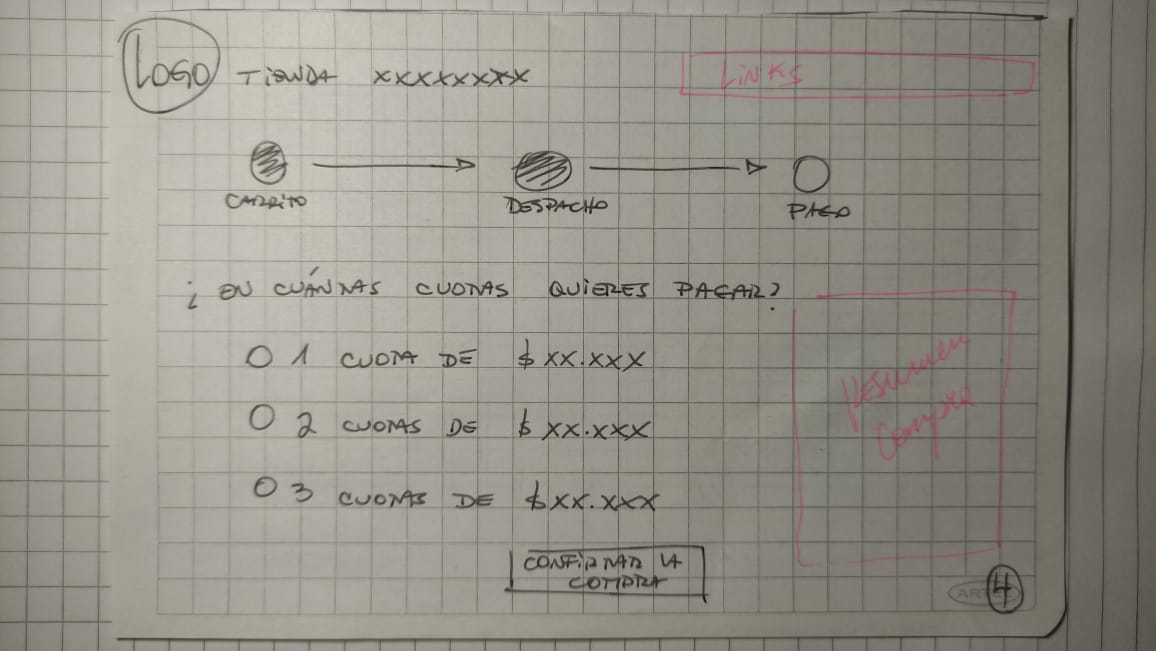 LOGO TIENDA XXXXXXXX
LINKS
CARRITO
DESPACHO
PAGO
¿EN CUÁNTAS CUOTAS QUIERES PAGAR?
1 CUOTA DE $XX.XXX
2 CUOTAS DE $XX.XXX
3 CUOTAS DE $XX.XXX
Resumen
Compra
CONFIRMAR LA
COMPRA
4